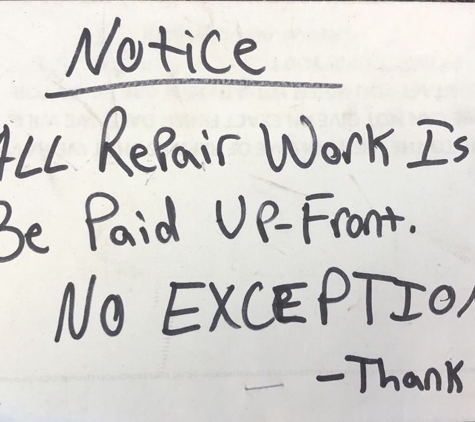 Notice
ALL Repair Work Is
Be Paid UP-Front.
No EXCEPTION
-Thank